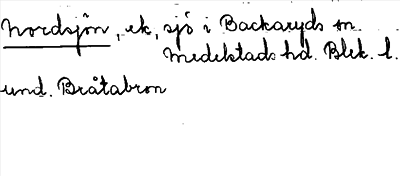 Nordsjön, ek, sjö i Backaryds sn.
Medelstads hd. Blek. l.
und. Bråtabron